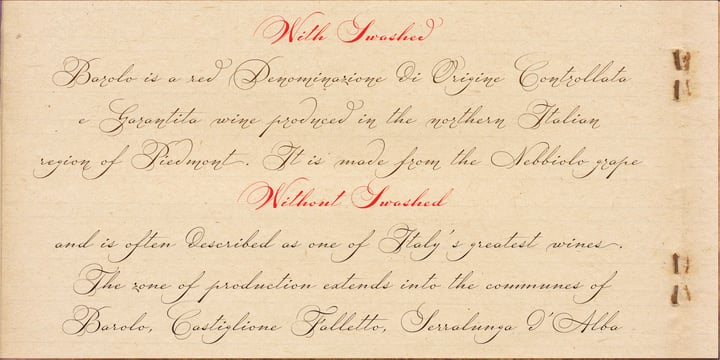 With Swashed
Barolo is a red Denominazione di Origine Controllata
e Garantita wine produced in the northern Italian
region of Piedmont. It is made from the Nebbiolo grape
Without Swashed
and is often described as one of Italy's greatest wines.
The zone of production extends into the communes of
Barolo, Castiglione Falletto, Serralunga d'Alba